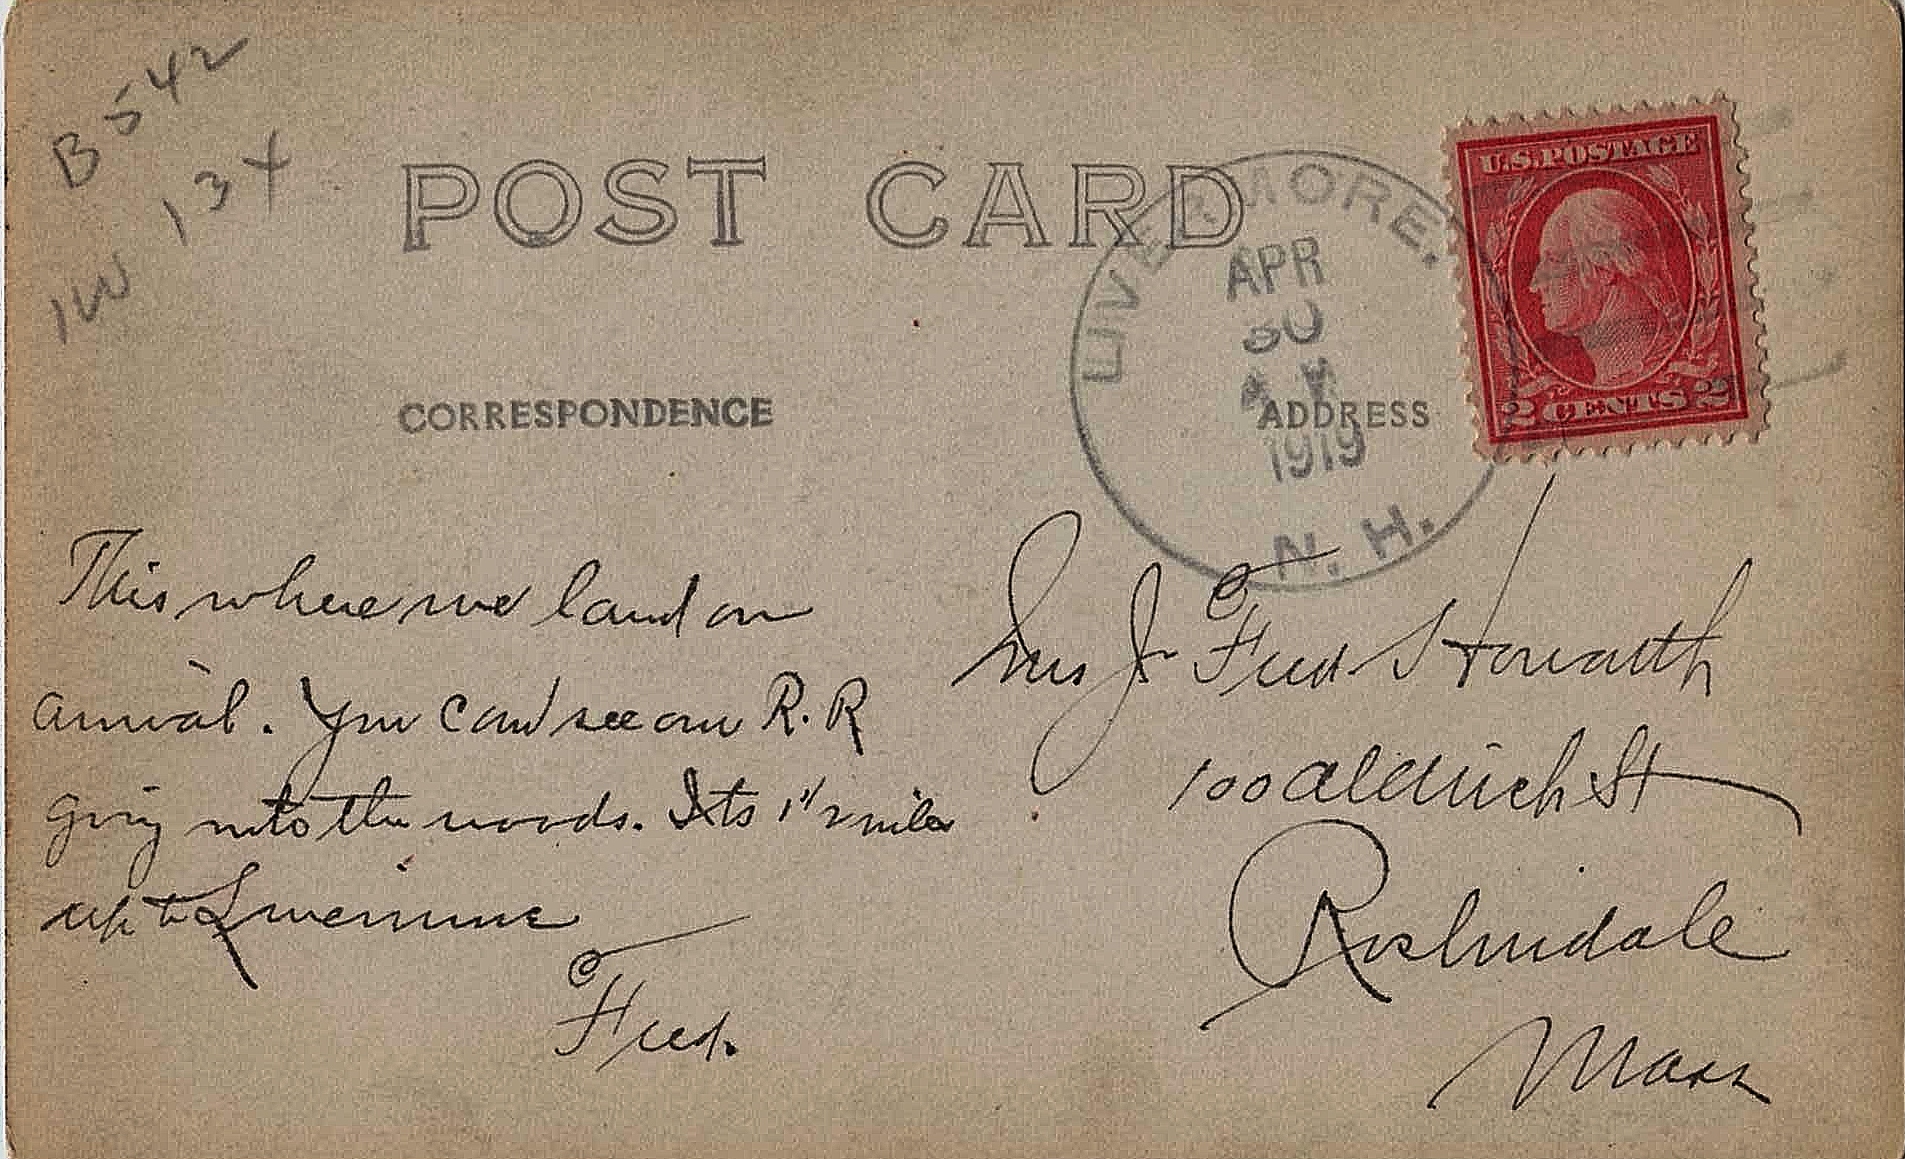 B 542
POST CARD
CORRESPONDENCE
ADDRESS
LIVERMORE.
APR
30
1919
N. H.
U.S. POSTAGE
2 CENTS 2
This where we land on
arrival. You can see our R.R
going into the woods. Its 1 1/2 miles
up to Livermore
Fred.
Mrs J Fred Howarth
100 Aldrich St
Roslindale
Mass